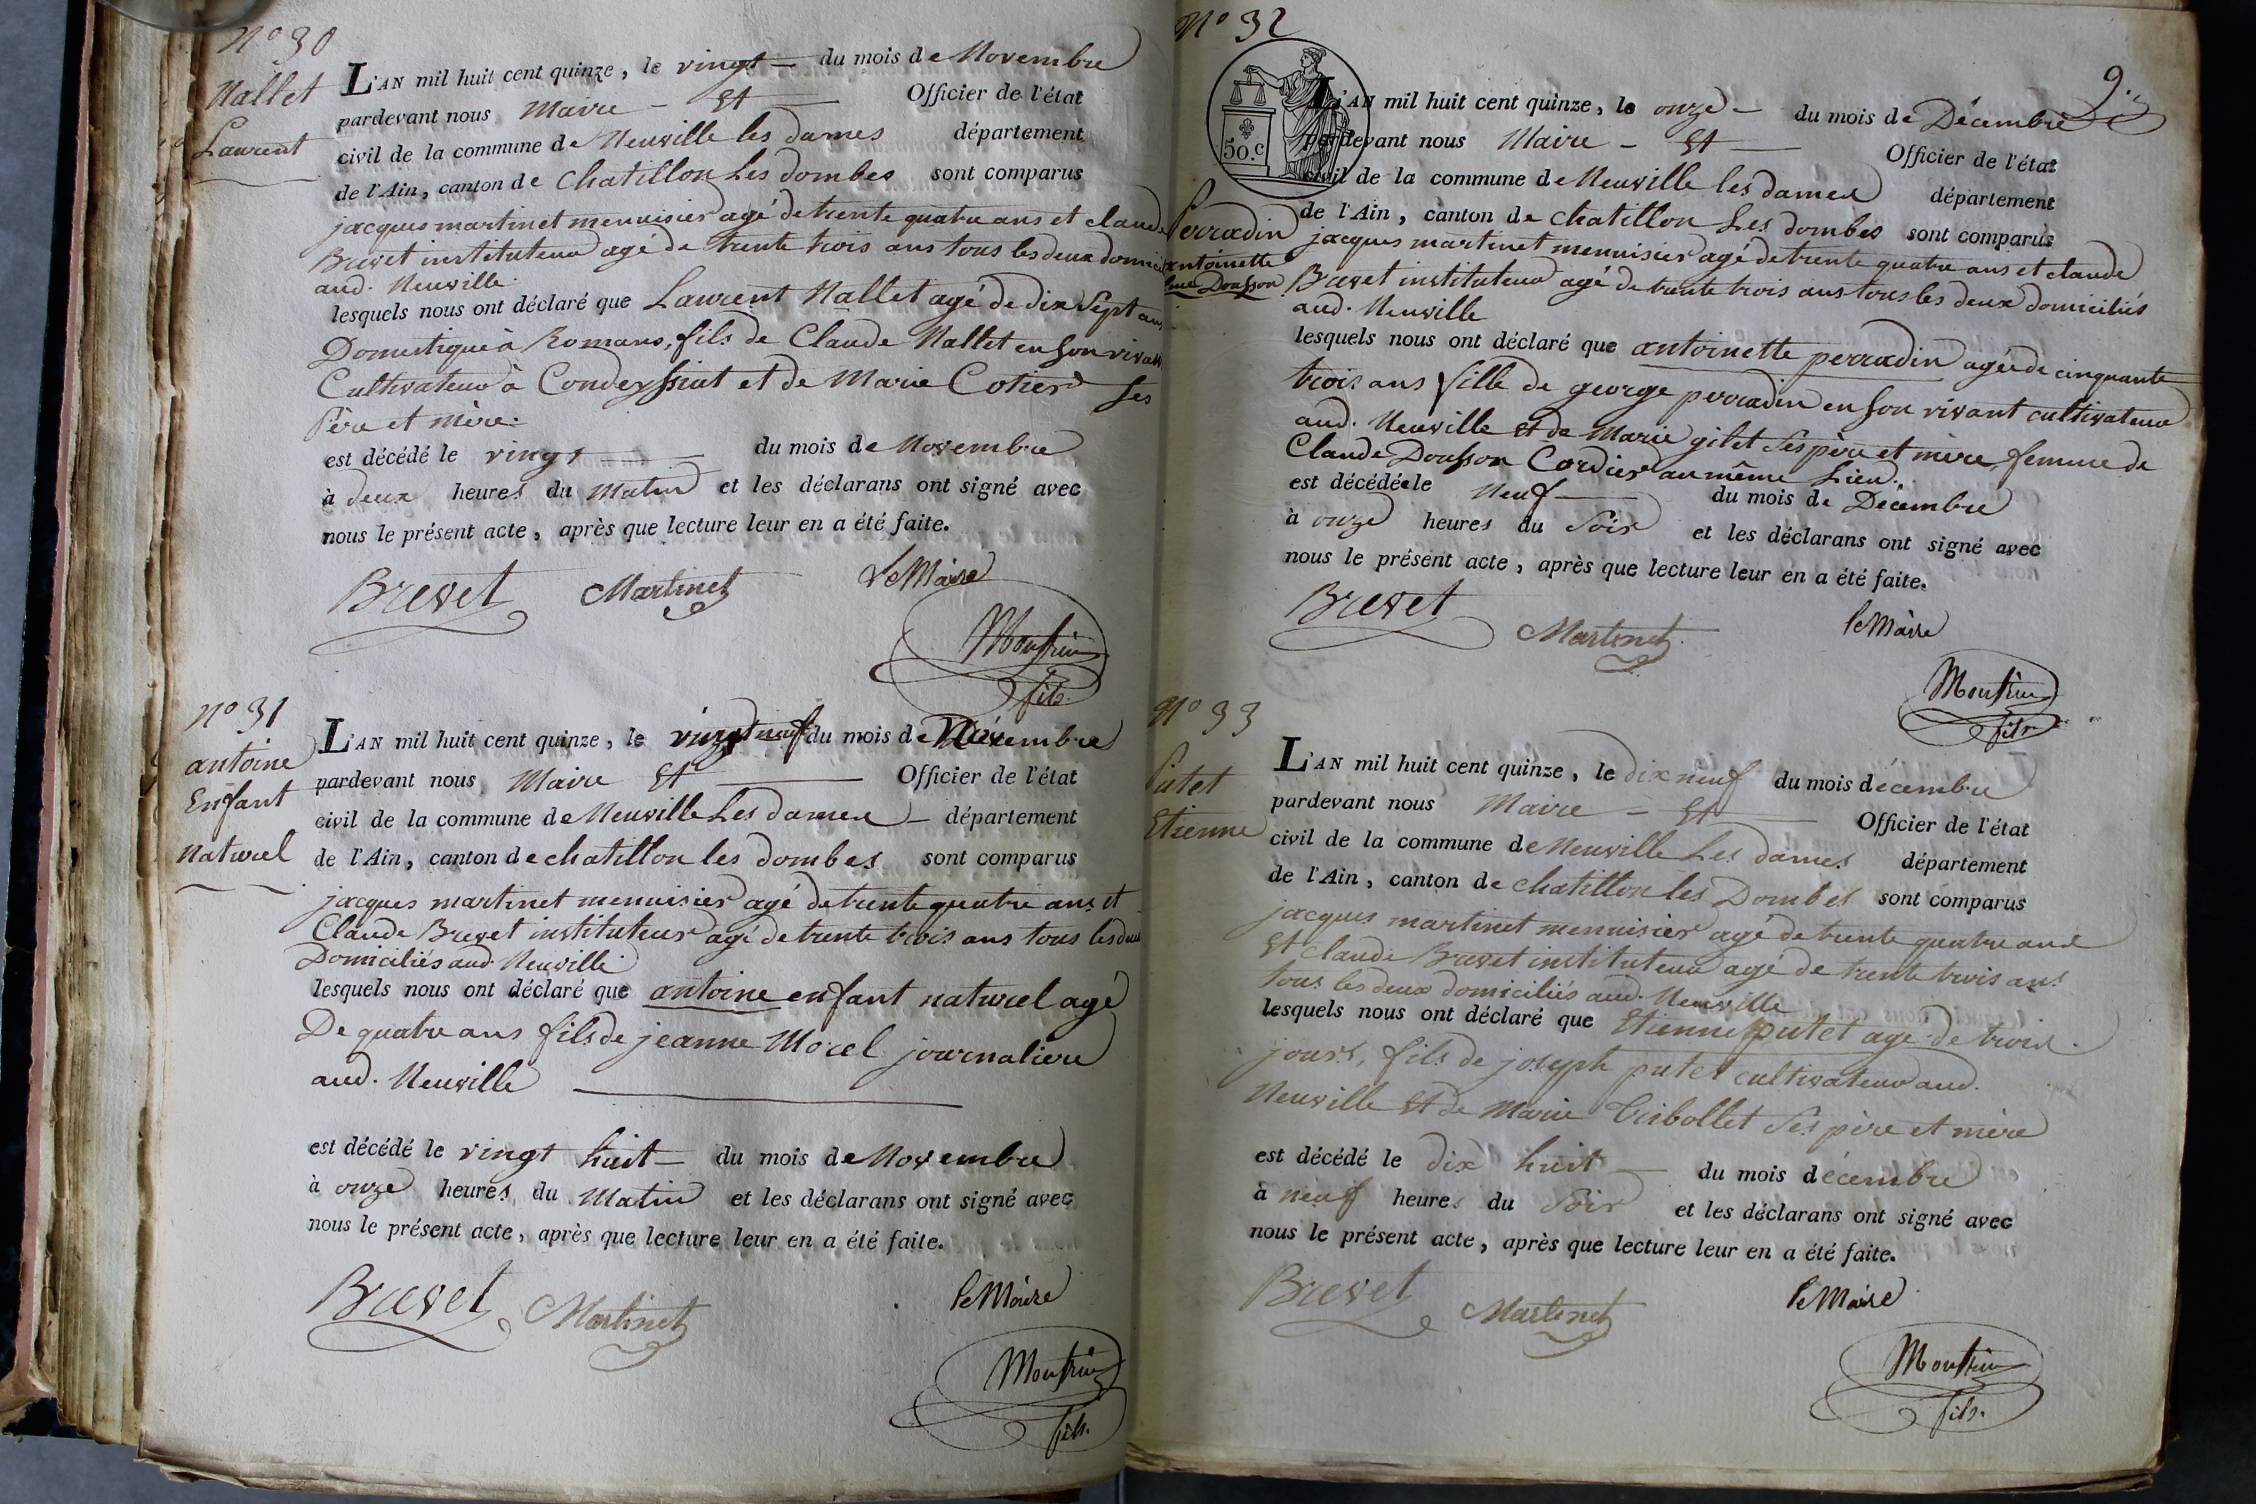 N° 30
Nallet
Laurent
L'AN mil huit cent quinze, le vingt du mois de Novembre
pardevant nous Maire Et Officier de l'état
civil de la commune de Neuville les dames département
de l'Ain, canton de Chatillon Les dombes sont comparus
jacques martinet menuisier agé de trente quatre ans et claude
Brevet instituteur agé de trente trois ans tous les deux domicil
aud. Neuville
lesquels nous ont déclaré que Laurent Nallet agé de dix Sept ans
Domestique à Romans, fils de Claude Nallet en son vivant
Cultivateur à Condeyssiat et de Marie Cotier Ses
Père et Mère.
est décédé le vingt du mois de Novembre
à deux heures du Matin et les déclarans ont signé avec
nous le présent acte, après que lecture leur en a été faite.
Brevet Martinet Le Maire
fils.
N° 31
antoine
Enfant
Naturel
L'AN mil huit cent quinze, le vingt neuf du mois de Novembre
pardevant nous Maire Et Officier de l'état
civil de la commune de Neuville Les dames département
de l'Ain, canton de chatillon les dombes sont comparus
jacques martinet menuisier agé de trente quatre ans et
Claude Brevet instituteur agé de trente trois ans tous les deux
Domiciliés aud. Neuville
lesquels nous ont déclaré que antoine enfant naturel agé
De quatre ans fils de jeanne Morel journaliere
aud. Neuville
est décédé le vingt huit du mois de Novembre
à onze heures du Matin et les déclarans ont signé avec
nous le présent acte, après que lecture leur en a été faite.
Brevet Martinet le Maire
fils.
N° 32
9.
50.C
Perradin
antoinette
L'AN mil huit cent quinze, le onze du mois de Décembre
pardevant nous Maire Et Officier de l'état
civil de la commune de Neuville les dames département
de l'Ain, canton de Chatillon Les dombes sont comparus
jacques martinet menuisier agé de trente quatre ans et claude
Brevet instituteur agé de trente trois ans tous les deux domiciliés
aud. Neuville
lesquels nous ont déclaré que antoinette perradin agée de cinquante
trois ans fille de george perradin en son vivant cultivateur
aud. Neuville et de Marie gilet Ses père et mère, femme de
Claude Dousson Cordier au même Lieu.
est décédée le Neuf du mois de Décembre
à onze heures du Soir et les déclarans ont signé avec
nous le présent acte, après que lecture leur en a été faite.
Brevet Martinet le Maire
fils
N° 33
Putet
Etienne
L'AN mil huit cent quinze, le dix neuf du mois décembre
pardevant nous Maire Et Officier de l'état
civil de la commune de Neuville Les dames département
de l'Ain, canton de chatillon les Dombes sont comparus
jacques martinet menuisier agé de trente quatre ans
Et claude Brevet instituteur agé de trente trois ans
tous les deux domiciliés aud. Neuville
lesquels nous ont déclaré que Etienne putet agé de trois
jours, fils de joseph putet cultivateur aud.
Neuville Et de Marie Tribollet Ses père et mère
est décédé le dix huit du mois décembre
à neuf heures du Soir et les déclarans ont signé avec
nous le présent acte, après que lecture leur en a été faite.
Brevet Martinet le Maire
fils.